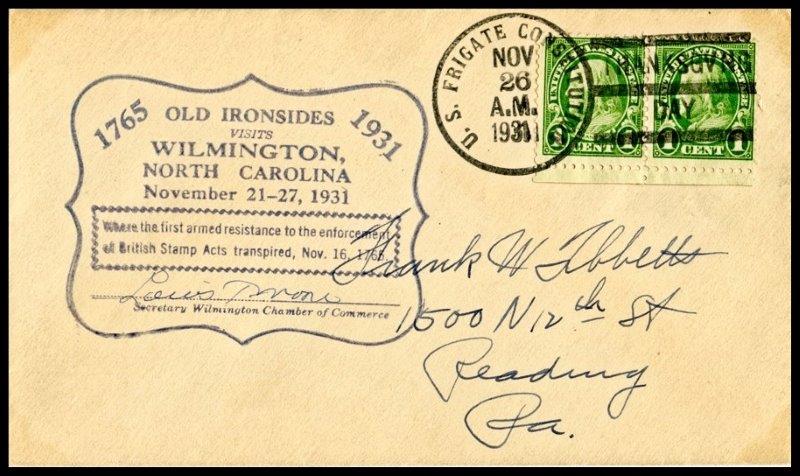 1765 OLD IRONSIDES 1931
VISITS
WILMINGTON,
NORTH CAROLINA
November 21-27, 1931
Where the first armed resistance to the enforcement
of British Stamp Acts transpired, Nov. 16, 1765.
Louis T Moore
Secretary Wilmington Chamber of Commerce
U. S. FRIGATE CONSTITUTION
NOV
26
A.M.
1931
DAY
1 CENT 1
1 CENT 1
Frank W Tibbetts
1500 N 12th St
Reading
Pa.